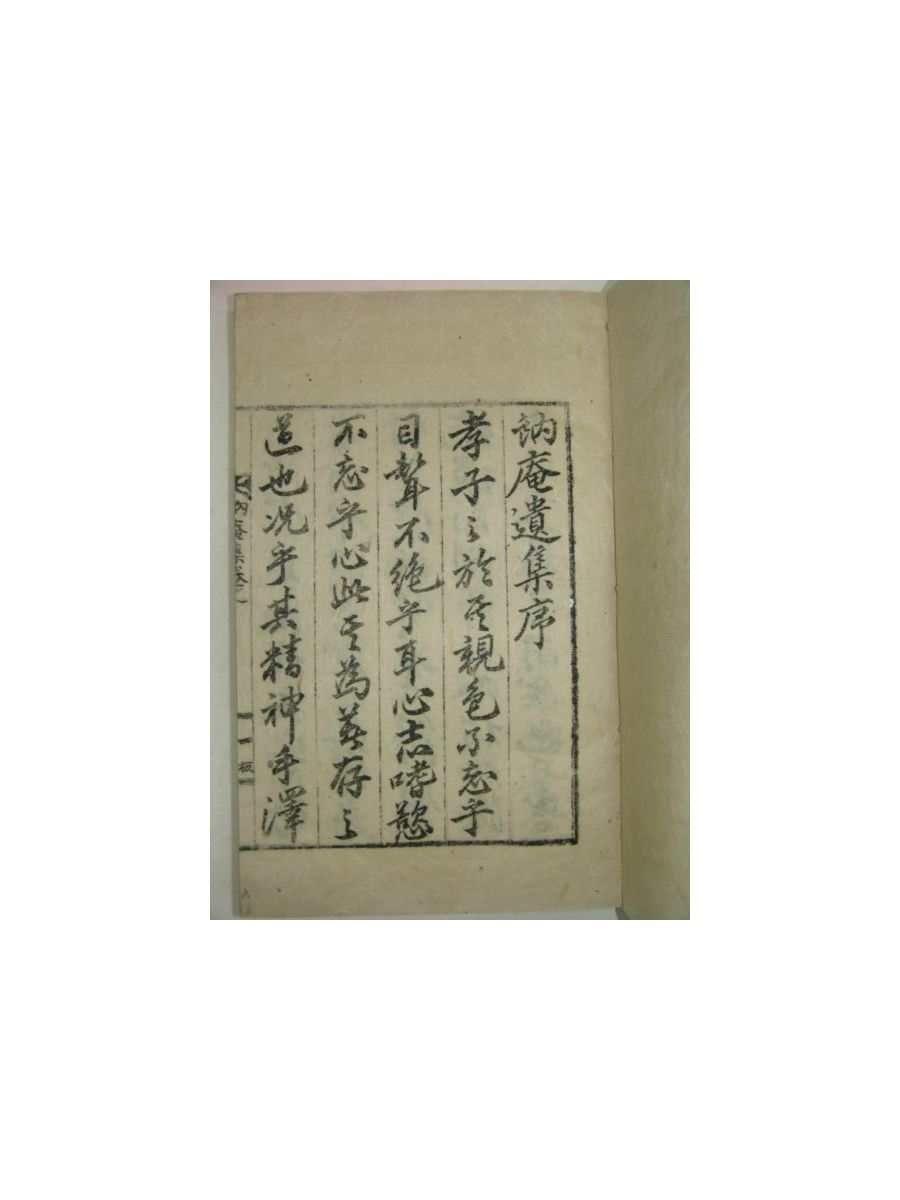 訥庵遺集序
孝子之於其親色不忘乎
目聲不絶乎耳心志嗜慾
不忘乎心此其為著存之
道也况乎其精神手澤
庵集
一
板